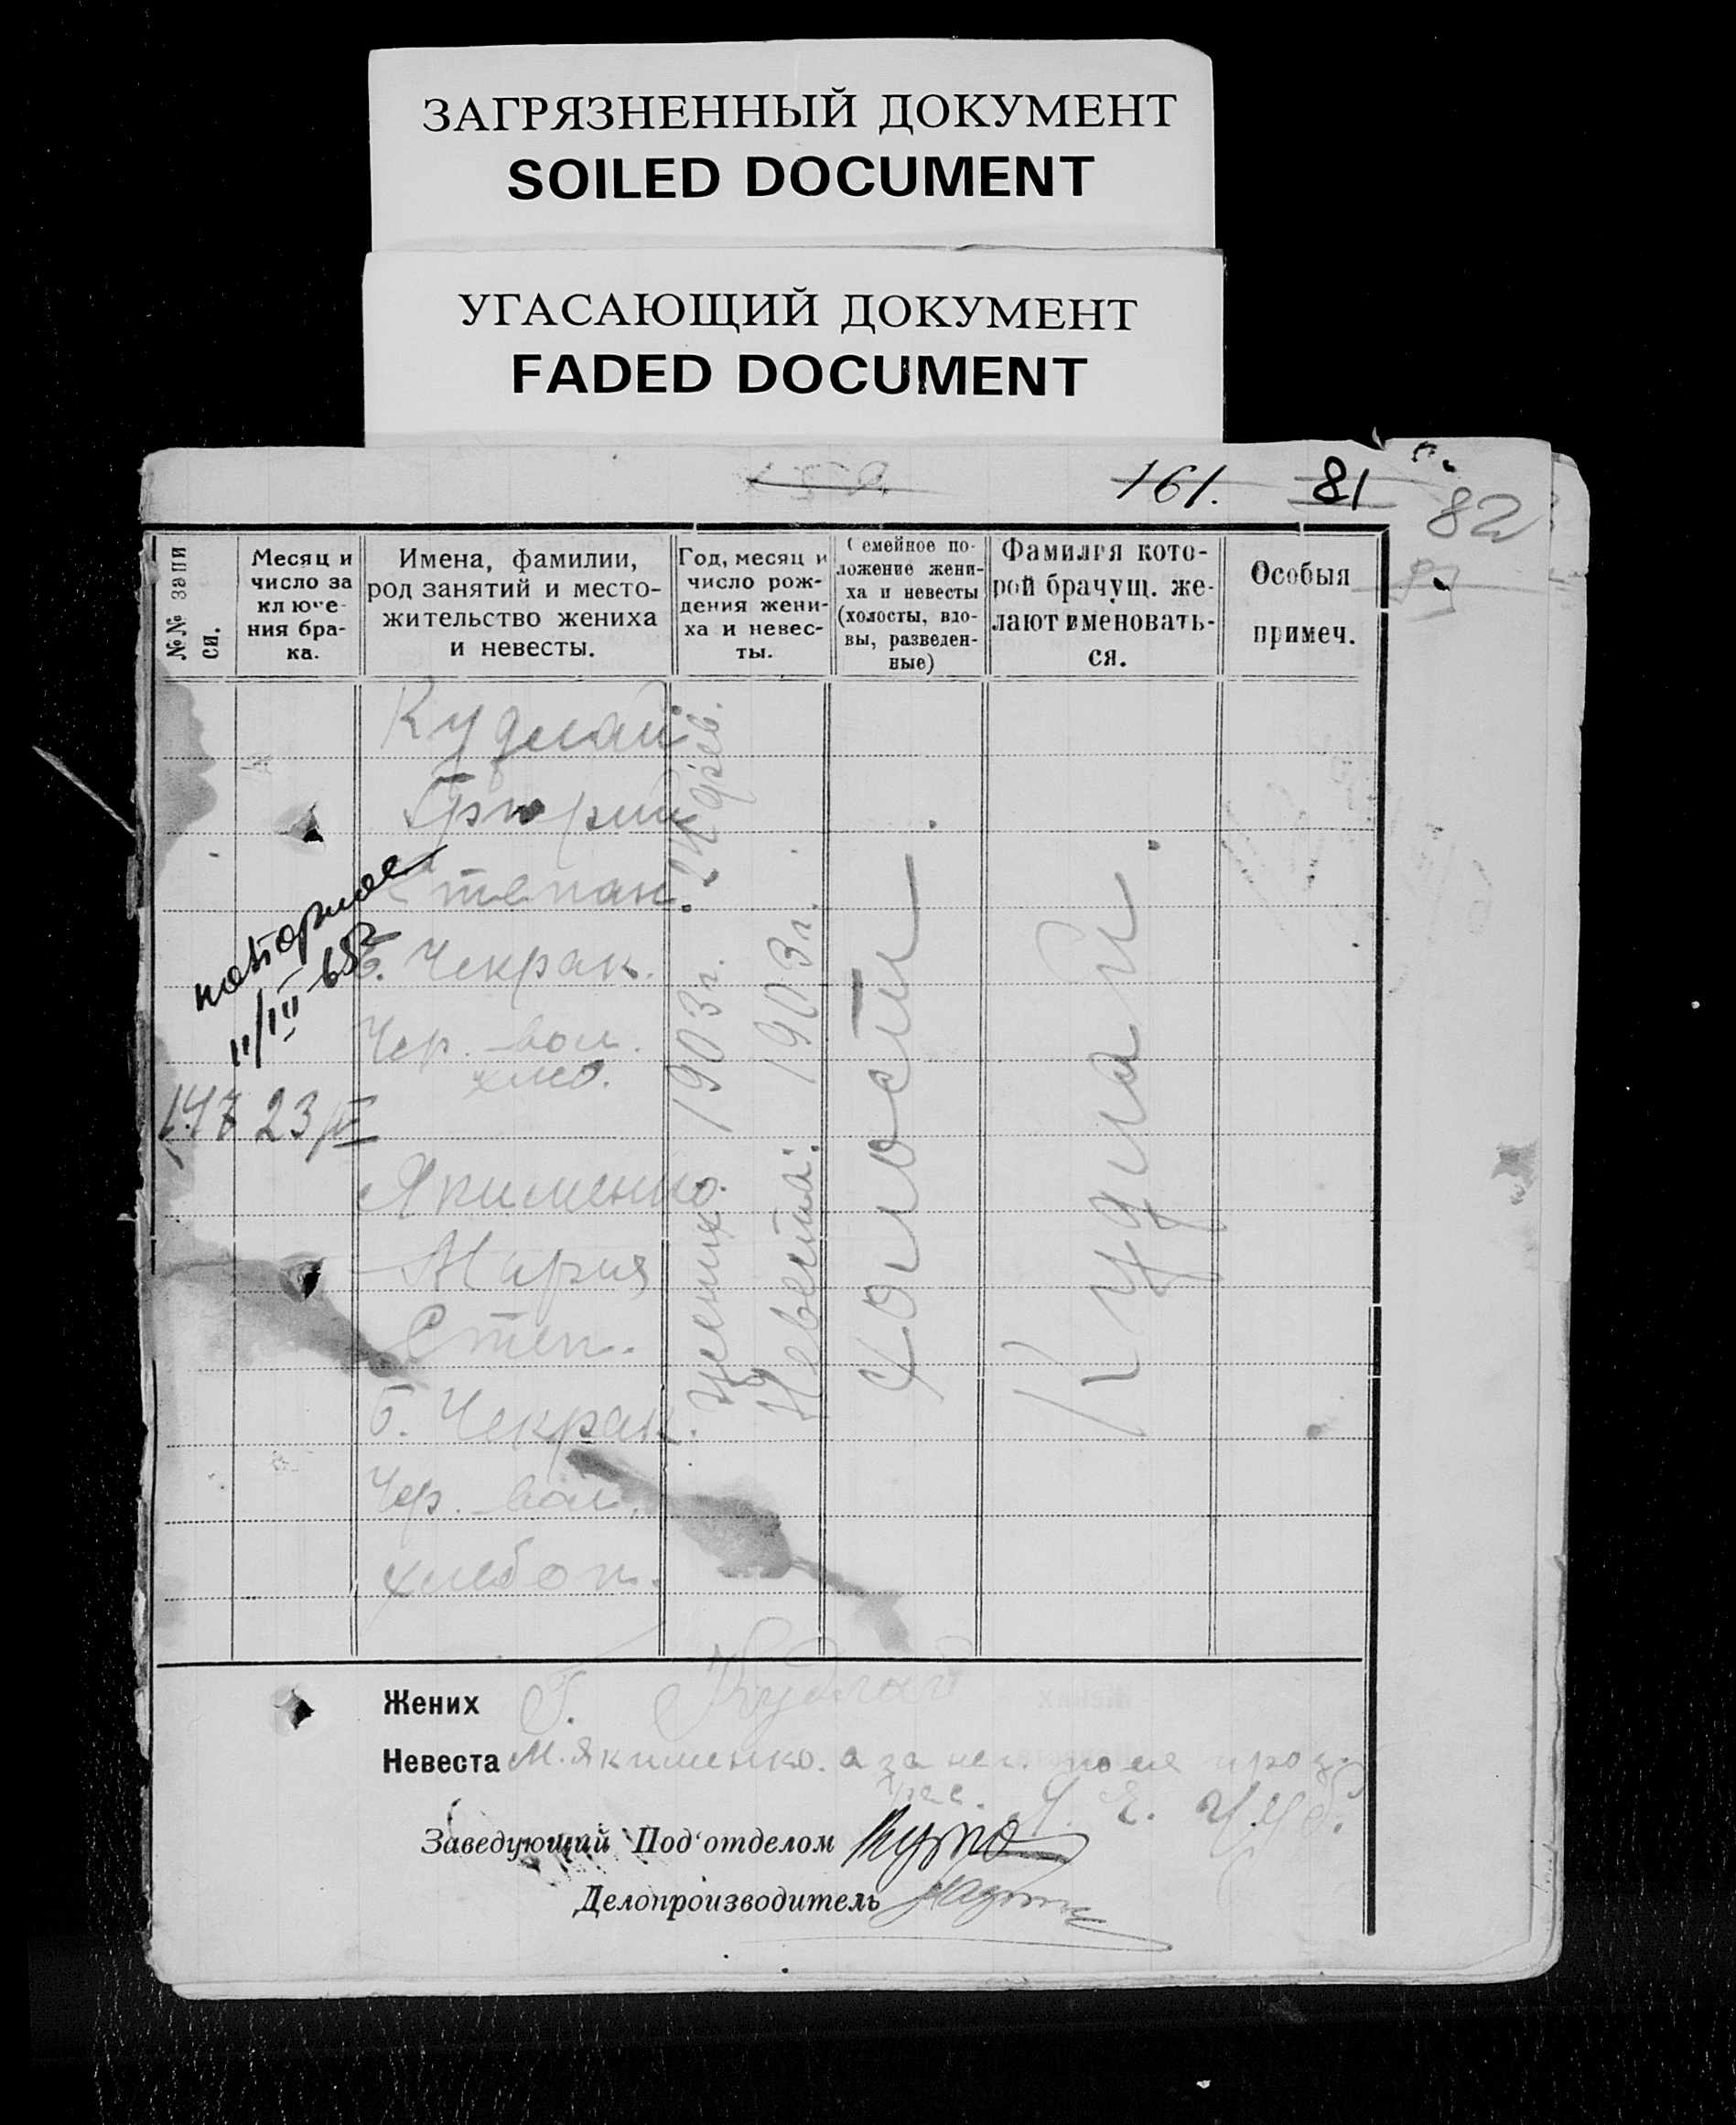 ЗАГРЯЗНЕННЫЙ ДОКУМЕНТ
SOILED DOCUMENT
УГАСАЮЩИЙ ДОКУМЕНТ
FADED DOCUMENT
161. 81
82
№№ запи
си.
Месяц и
число за
ключе-
ния бра-
ка.
Имена, фамилии,
род занятий и место-
жительство жениха
и невесты.
Год, месяц и
число рож-
дения жени-
ха и невес-
ты.
Семейное по-
ложение жени-
ха и невесты
(холосты, вдо-
вы, разведен-
ные)
Фамилия кото-
рой брачущ. же-
лают именовать-
ся.
Особыя
примеч.
Кудлай
Григорий
Степан.
Б. Чекрак.
Чер. вол.
хлеб.
повторное
11/III 65г
147 23/IV
Якименко
Мария
Степ.
Б. Чекрак.
Чер. вол.
хлебоп.
Жених 1903г.
Невеста: 1903г.
Холосты
Кудлай.
Жених Г. Кудлай
Невеста М. Якименко. а за нег.
Заведующий Под'отделом
Делопроизводитель